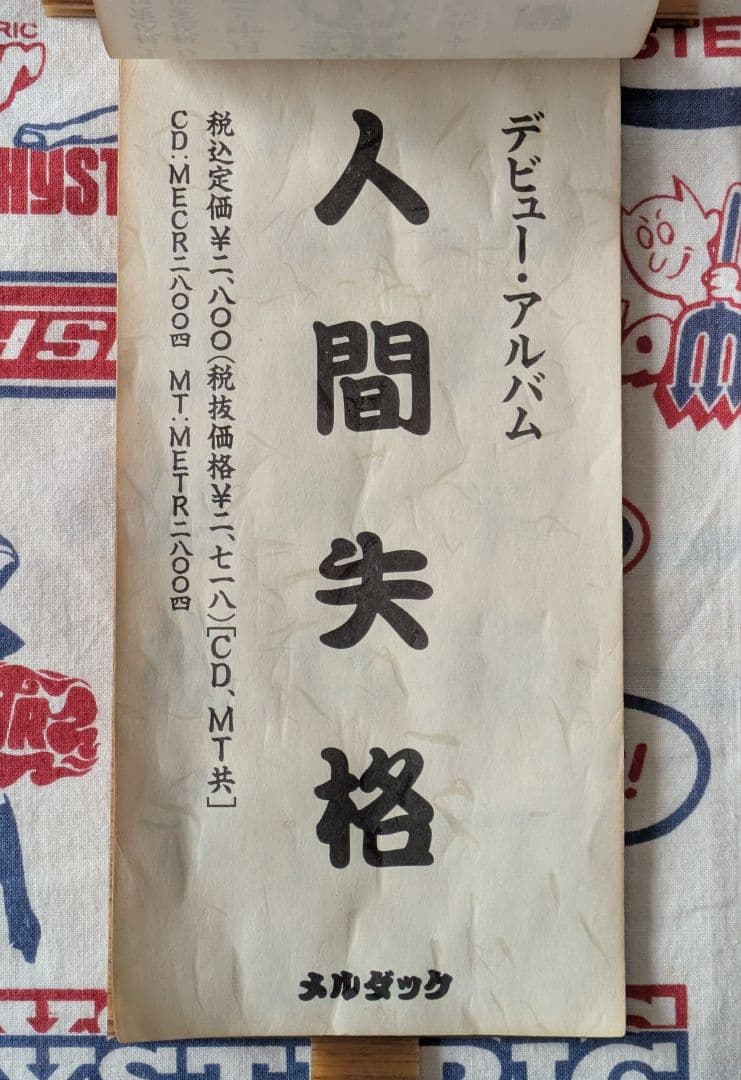 デビュー・アルバム
人間失格
税込定価￥二、八〇〇(税抜価格￥二、七一八)[CD、MT共]
CD:MECR二八〇〇四 MT:METR二八〇〇四
メルダック
RIC
STE
HYST
HYSTERIC